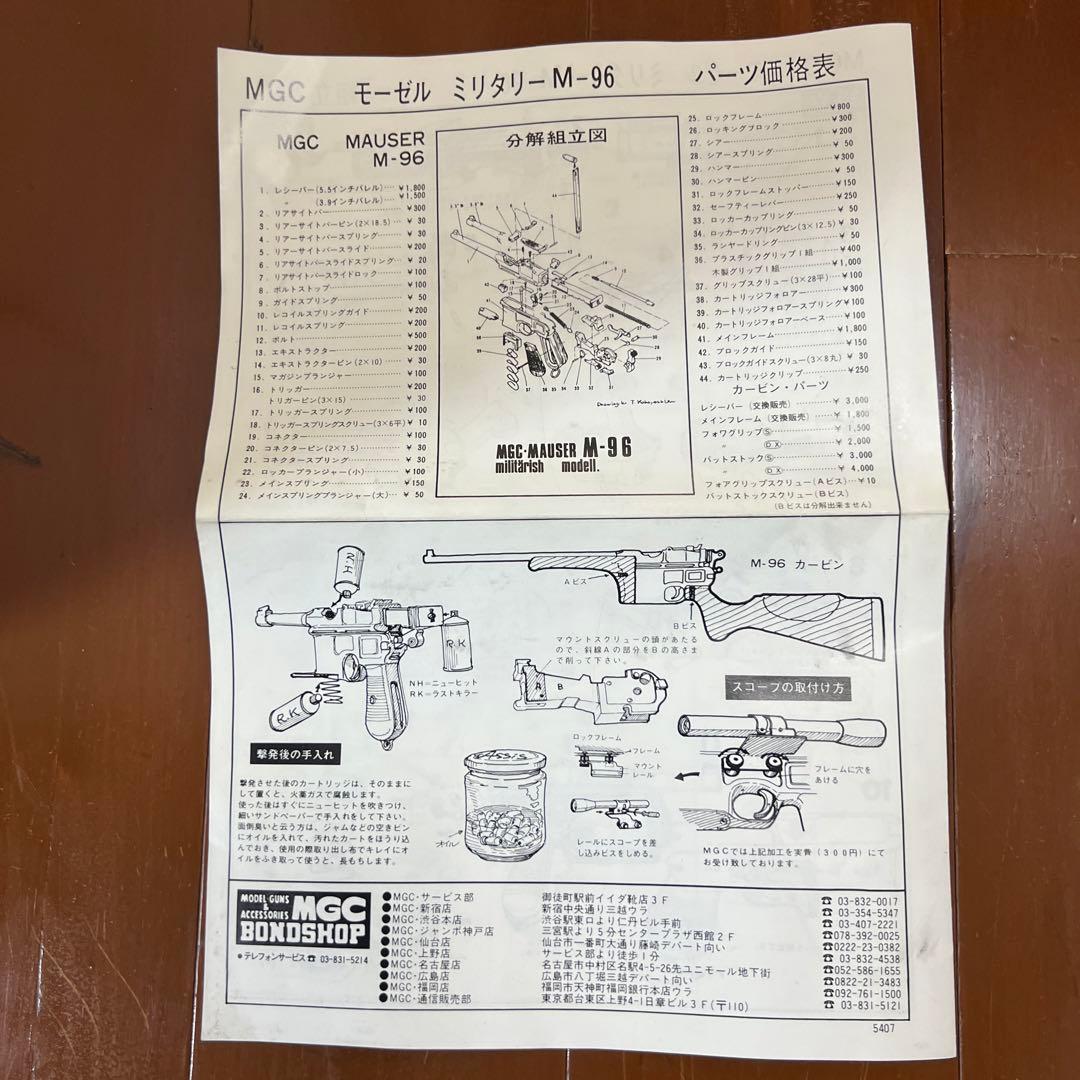 MGC モーゼル ミリタリーM-96 パーツ価格表
MGC MAUSER
M-96
1. レシーバー(5.5インチバレル)…¥1,800
〃 (3.9インチバレル)…¥1,500
2. リアサイトバー…¥300
3. リアーサイトバーピン(2×18.5)…¥ 30
4. リアーサイトバースプリング…¥ 30
5. リアーサイトバースライド…¥200
6. リアサイトバースライドスプリング…¥ 20
7. リアサイトバースライドロック…¥100
8. ボルトストップ…¥100
9. ガイドスプリング…¥ 50
10. レコイルスプリングガイド…¥200
11. レコイルスプリング…¥200
12. ボルト…¥500
13. エキストラクター…¥200
14. エキストラクターピン(2×10)…¥ 30
15. マガジンプランジャー…¥100
16. トリッガー…¥200
トリガーピン(3×15)…¥ 30
17. トリッガースプリング…¥100
18. トリッガースプリングスクリュー(3×6平)¥ 10
19. コネクター…¥100
20. コネクターピン(2×7.5)…¥ 30
21. コネクタースプリング…¥ 30
22. ロッカープランジャー(小)…¥100
23. メインスプリング…¥150
24. メインスプリングプランジャー(大)…¥ 50
分解組立図
MGC・MAUSER M-96
militärish modell.
25. ロックフレーム…¥800
26. ロッキングブロック…¥300
27. シアー…¥200
28. シアースプリング…¥ 50
29. ハンマー…¥300
30. ハンマーピン…¥ 50
31. ロックフレームストッパー…¥150
32. セーフティーレバー…¥250
33. ロッカーカップリング…¥ 50
34. ロッカーカップリングピン(3×12.5)¥ 30
35. ランヤードリング…¥ 50
36. プラスチックグリップ1組…¥400
木製グリップ1組…¥1,000
37. グリップスクリュー(3×28平)…¥100
38. カートリッジフォロアー…¥300
39. カートリッジフォロアースプリング¥100
40. カートリッジフォロアーベース…¥100
41. メインフレーム…¥1,800
42. ブロックガイド…¥150
43. ブロックガイドスクリュー(3×8丸)¥ 30
44. カートリッジクリップ…¥250
カービン・パーツ
レシーバー(交換販売)…¥ 3,000
メインフレーム(交換販売)…¥ 1,800
フォワグリップⓈ…¥ 1,500
〃 DX…¥ 2,000
バットストックⓈ…¥ 3,000
〃 DX…¥ 4,000
フォアグリップスクリュー(Aビス)…¥10
バットストックスクリュー(Bビス)
(Bビスは分解出来ません)
N.H
R.K
R.K
NH=ニューヒット
RK=ラストキラー
撃発後の手入れ
撃発させた後のカートリッジは、そのままに
して置くと、火薬ガスで腐蝕します。
使った後はすぐにニューヒットを吹きつけ、
細いサンドペーパーで手入れをして下さい。
面倒臭いと云う方は、ジャムなどの空きビン
にオイルを入れて、汚れたカートをほうり込
んでおき、使用の際取り出し布でキレイにオ
イルをふき取って使うと、長もちします。
オイル
M-96 カービン
Aビス
Bビス
マウントスクリューの頭があたる
ので、斜線Aの部分をBの高さま
で削って下さい。
A
B
ロックフレーム
フレーム
マウント
レール
レールにスコープを差
し込みビスをしめる。
スコープの取付け方
フレームに穴を
あける
MGCでは上記加工を実費(300円)にて
お受け致しております。
MODEL・GUNS
&
ACCESSORIES
MGC
BONDSHOP
●テレフォンサービス☎ 03-831-5214
●MGC・サービス部 御徒町駅前イイダ靴店3F ☎ 03-832-0017
●MGC・新宿店 新宿中央通り三越ウラ ☎ 03-354-5347
●MGC・渋谷本店 渋谷駅東口より仁丹ビル手前 ☎ 03-407-2221
●MGC・ジャンボ神戸店 三宮駅より5分センタープラザ西館2F ☎078-392-0025
●MGC・仙台店 仙台市一番町大通り藤崎デパート向い ☎0222-23-0382
●MGC・上野店 サービス部より徒歩1分 ☎ 03-832-4538
●MGC・名古屋店 名古屋市中村区名駅4-5-26先ユニモール地下街 ☎052-586-1655
●MGC・広島店 広島市八丁堀三越デパート向い ☎0822-21-3483
●MGC・福岡店 福岡市天神町福岡銀行本店ウラ ☎092-761-1500
●MGC・通信販売部 東京都台東区上野4-1日章ビル3F(〒110) ☎ 03-831-5121
5407